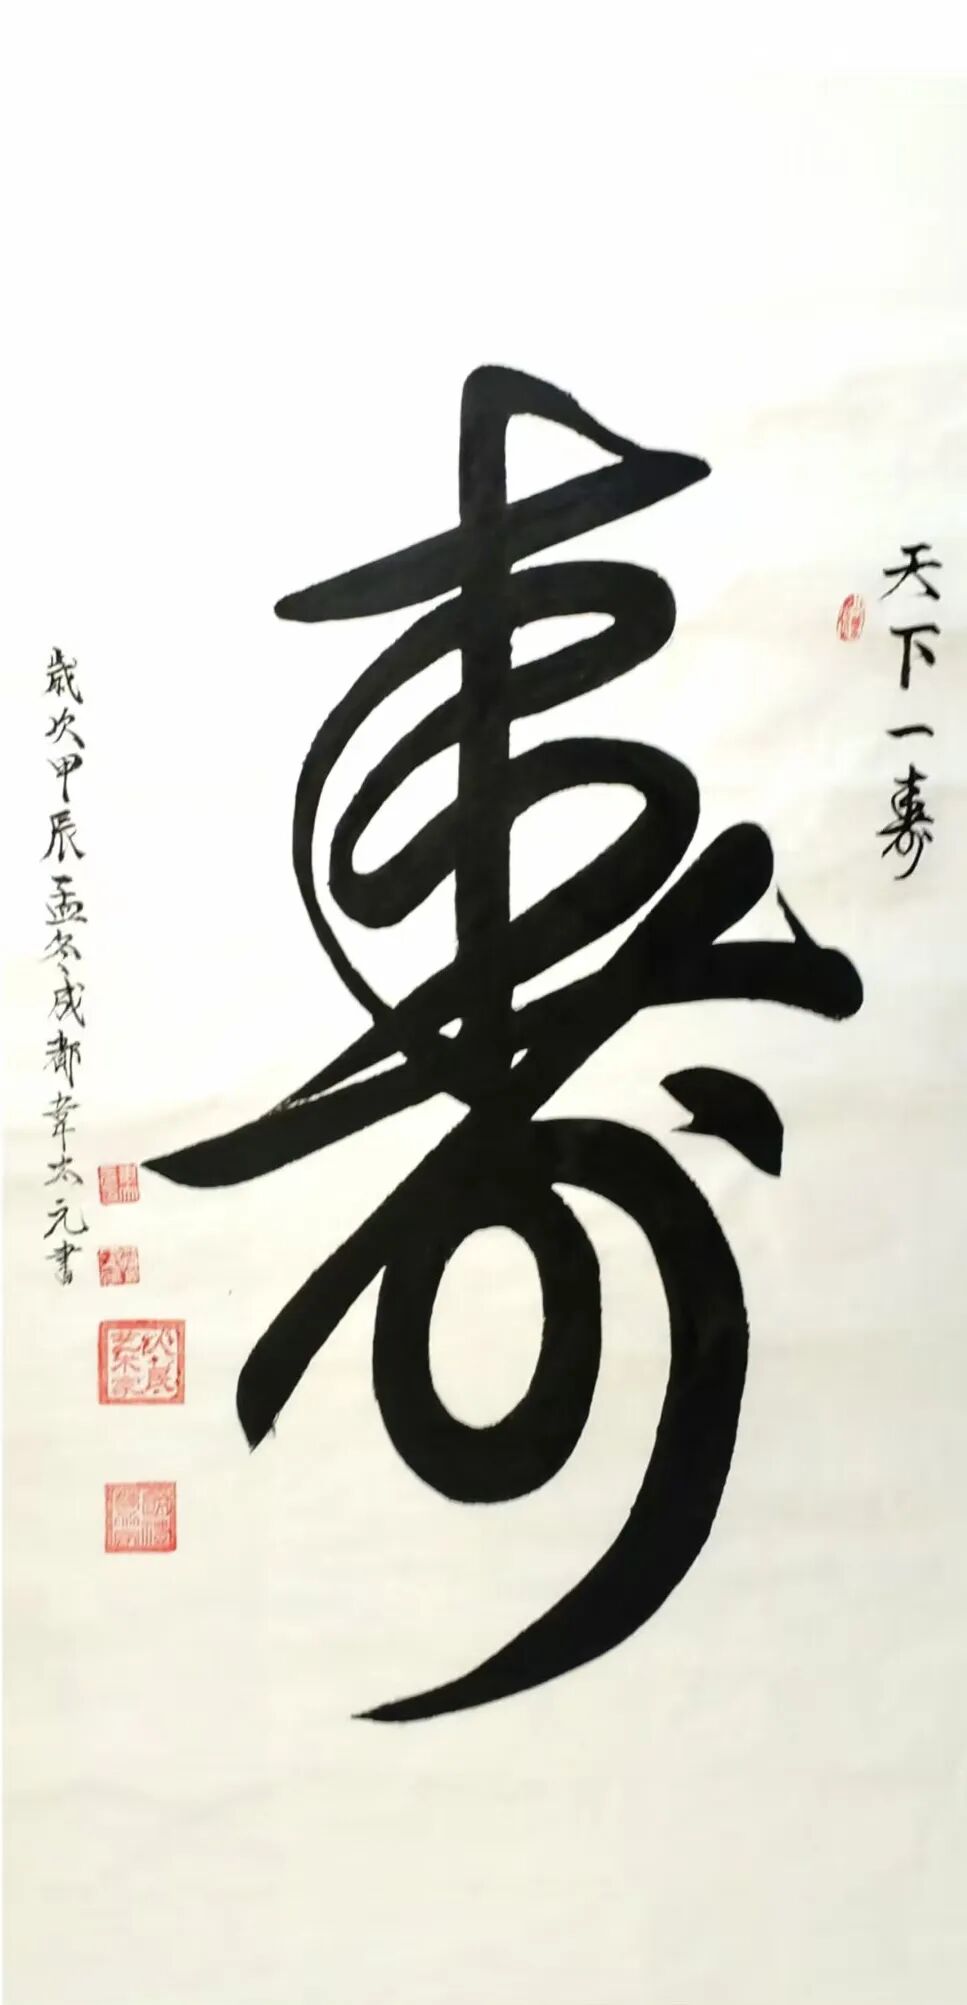 天下一壽
壽
歲次甲辰孟冬成都韋太元書